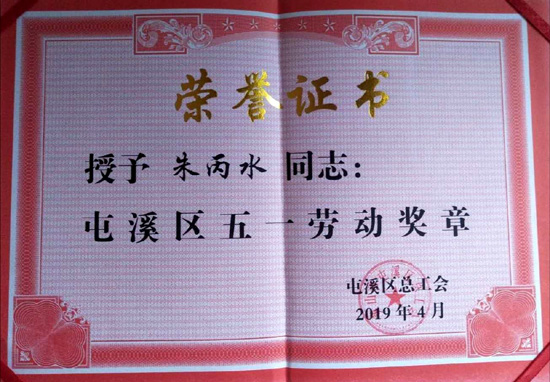 荣誉证书
授予 朱丙水 同志：
屯溪区五一劳动奖章
屯溪区总工会
2019年4月